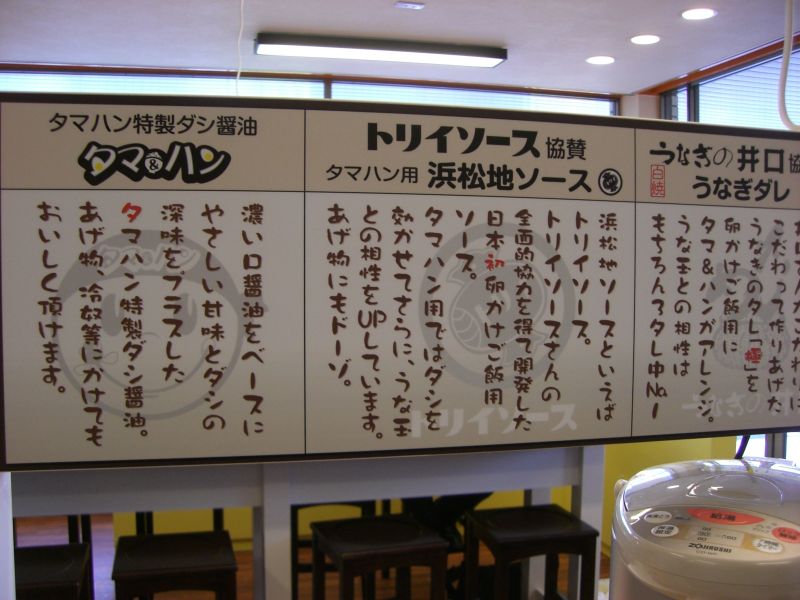 タマハン特製ダシ醤油
タマ&ハン
濃い口醤油をベースに
やさしい甘味とダシの
深味をプラスした
タマハン特製ダシ醤油。
あげ物、冷奴等にかけても
おいしく頂けます。
トリイソース 協賛
タマハン用 浜松地ソース
浜松地ソースといえば
トリイソース。
トリイソースさんの
全面的協力を得て開発した
日本初卵かけご飯用
ソース。
タマハン用ではダシを
効かせてさらに、うな玉
との相性をUPしています。
あげ物にもドーゾ。
トリイソース
うなぎの 井口 協
白焼
うなぎダレ
こだわって作りあげた
うなぎのタレ「極」を
卵かけご飯用に
タマ&ハンがアレンジ。
うな玉との相性は
もちろん3タレ中No.1
ZOJIRUSHI
給湯